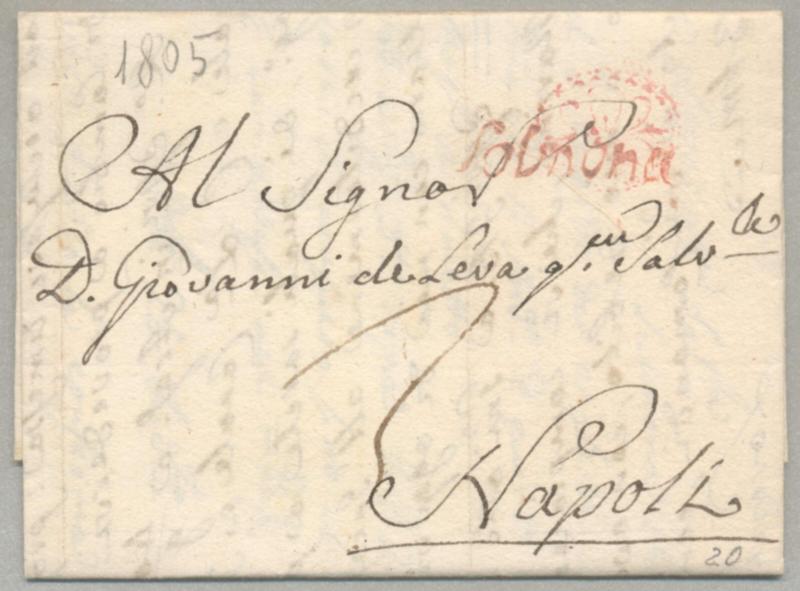 1805
Solmona
Al Signor
D. Giovanni de Leva q.m Salv.re
Napoli
20